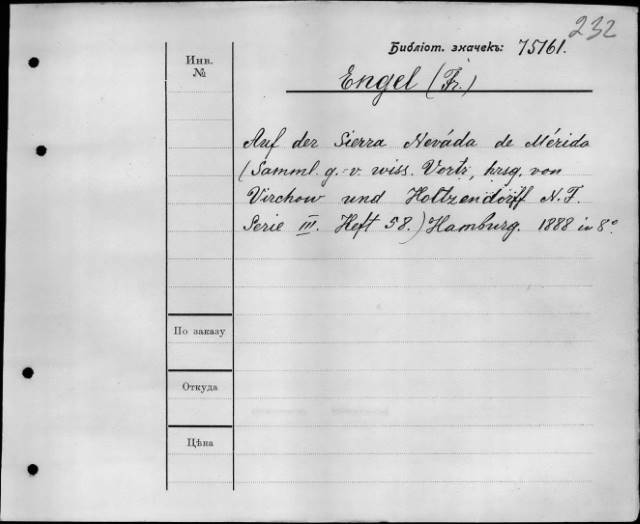 232
Библіот. значекъ: 75161.
Инв.
№
Engel (Fr.)
Auf der Sierra Neváda de Mérida
(Samml. g. v. wiss. Vortr, hrsg. von
Virchow und Holtzendorff N. F.
Serie III. Heft 58.) Hamburg. 1888 in 8°.
По заказу
Откуда
Цѣна